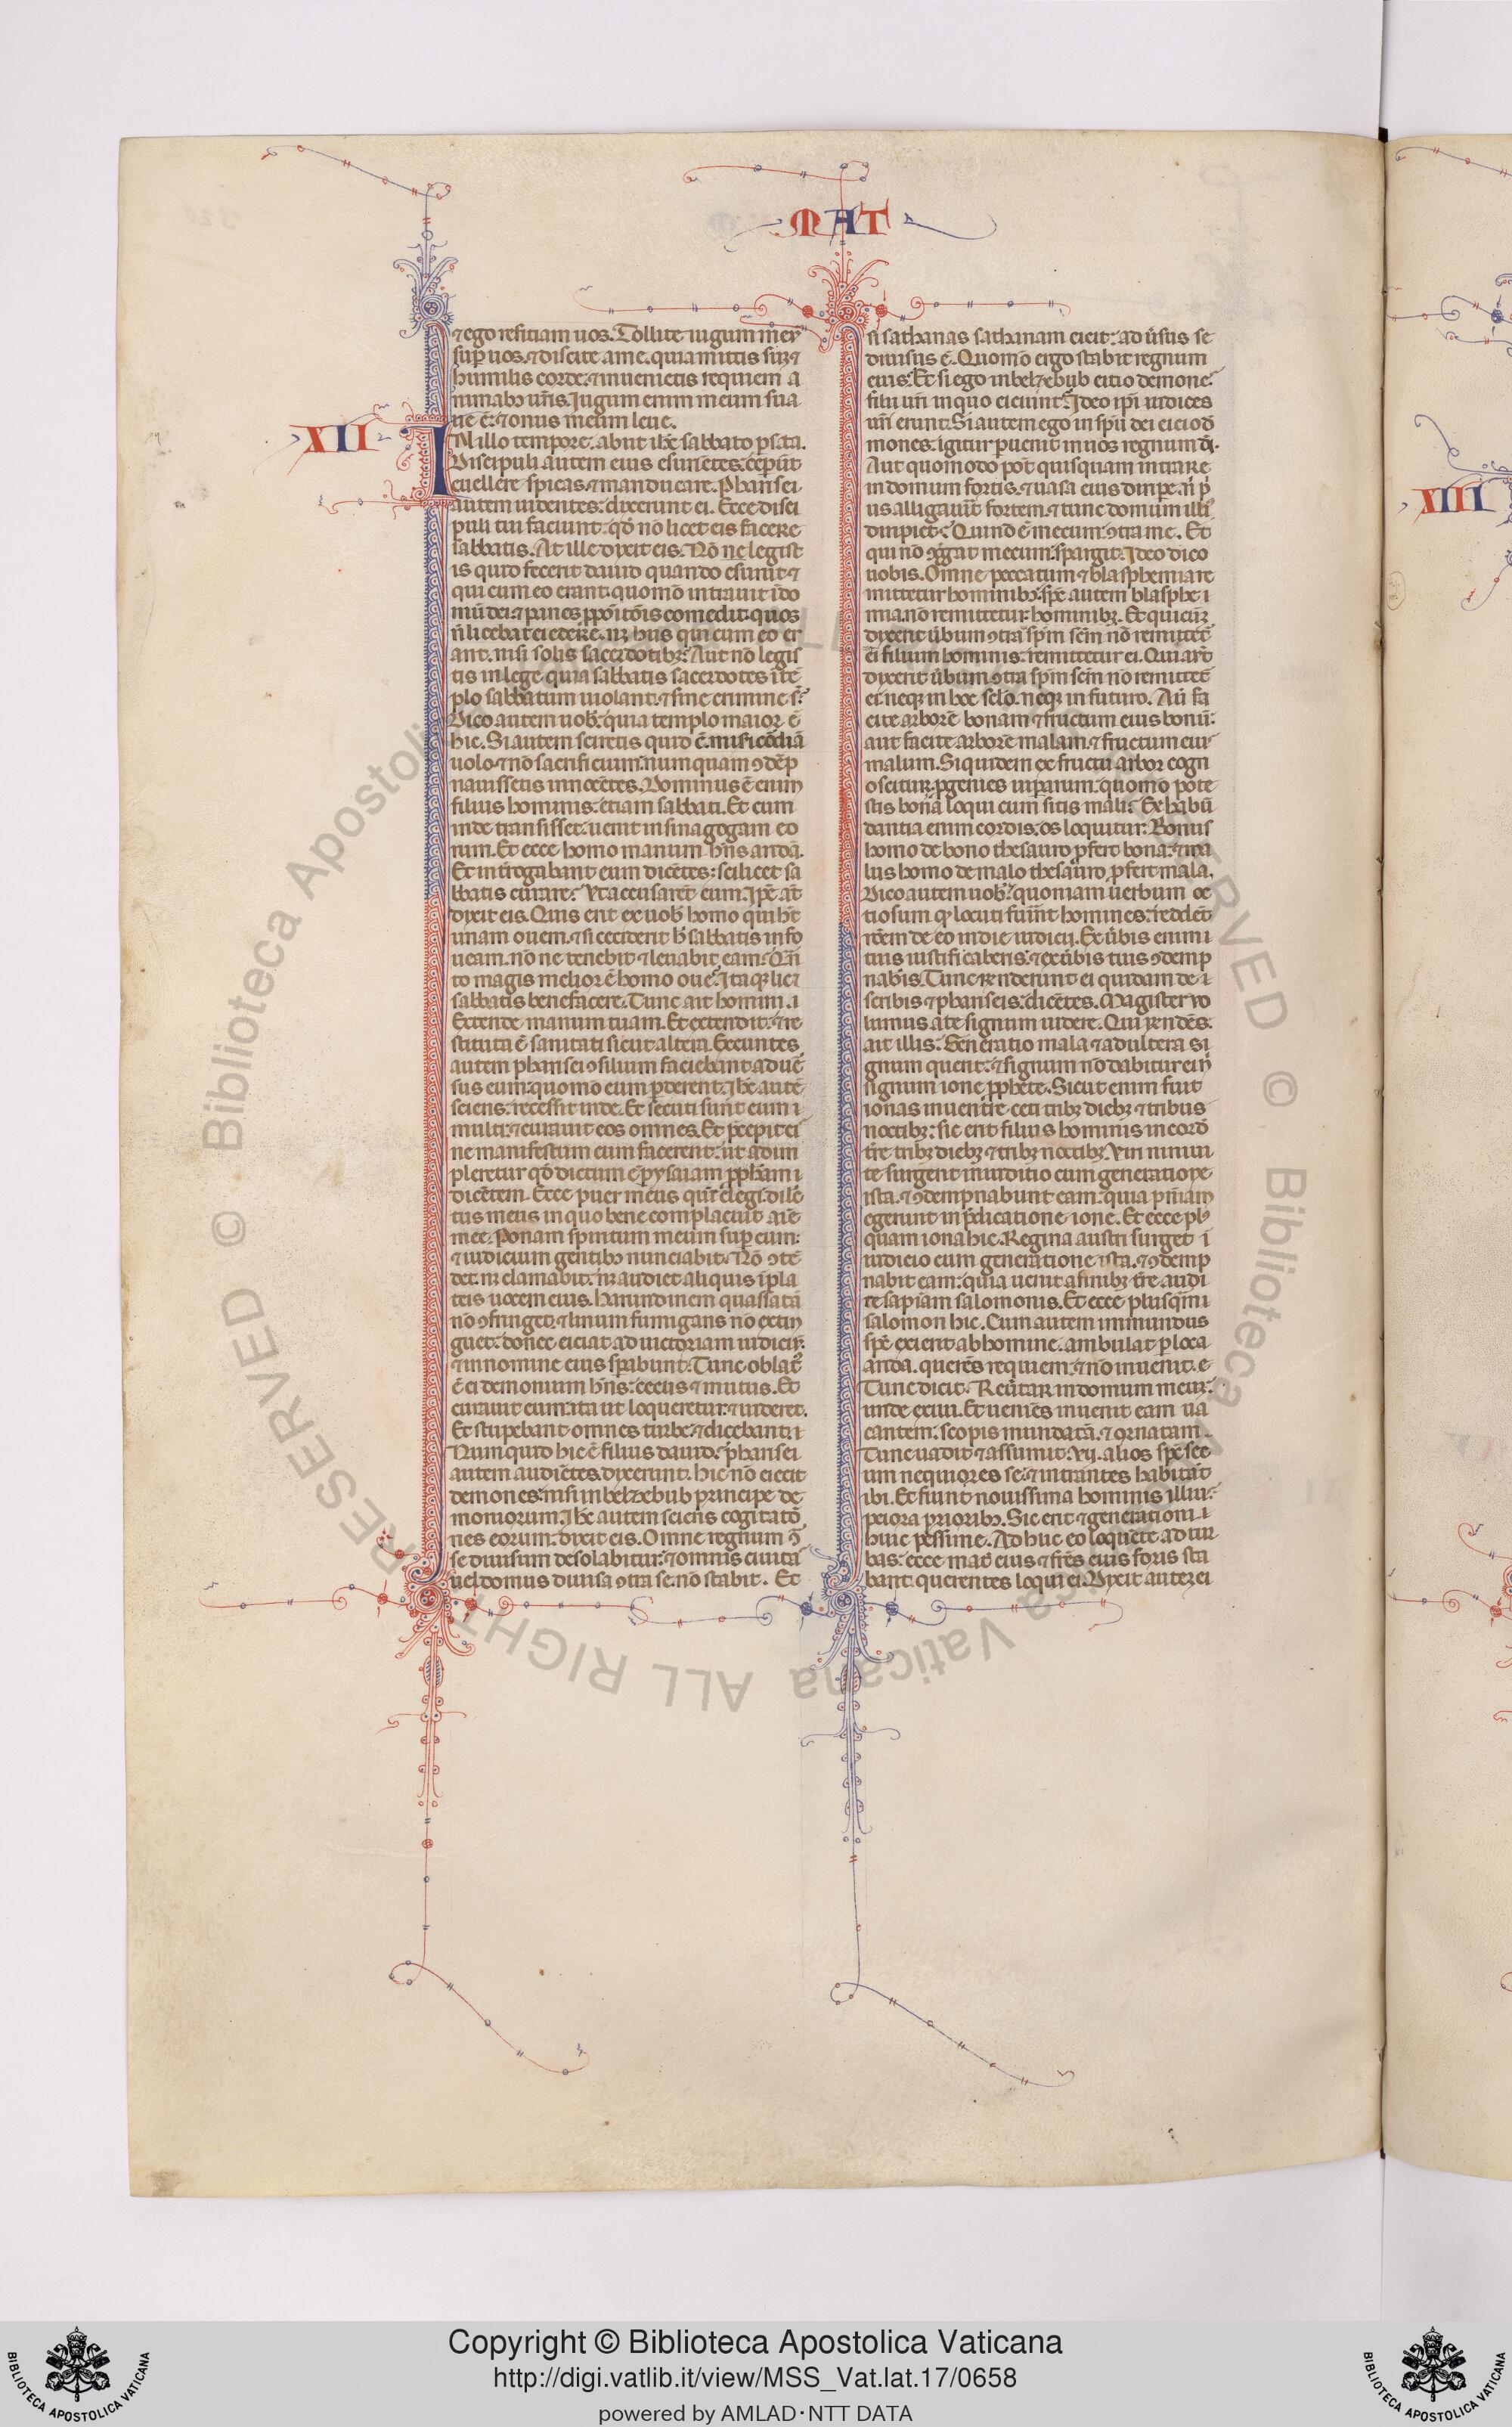 MAT
⁊ ego reficiam uos. Tollite iugum meū
sup̄ uos. ⁊ discite a me. quia mitis suꝫ ⁊
humilis corde: ⁊ inuenietis requiem a
nimabꝫ ur̄is. Iugum enim meum sua
ue ē: ⁊ onus meum leue.
XII
IN illo tempore. abiit ih̄c sabbato p̄ sata.
Discipuli autem eius esuriētes: cep̄ūt
euellere spicas. ⁊ manducare. Pharisei
autem uidentes: dixerunt ei. Ecce disci
puli tui faciunt: qđ nō licet eis facere
sabbatis. At ille dixit eis. Nō ne legist
is quid fecerit dauid quando esuriit ⁊
qui cum eo erant: quomō intrauit ī do
mū dei: ⁊ panes ꝓpōitōis comedit: quos
ñ licebat ei edere. nꝫ hiis qui cum eo er
ant. nisi solis sacerdotibꝫ? Aut nō legis
tis in lege quia sabbatis sacerdotes ī tē
plo sabbatum uiolant: ⁊ sine crimine s̄t?
Dico autem uob̄: quia templo maior ē
hic. Si autem sciretis quid ē. misicōdiā
uolo ⁊ nō sacrificium: num quam ꝯdēp
nassetis innocētes. Dominus ē enim
filius hominis: etiam sabbati. Et cum
inde transisset: uenit in sinagogam eo
rum. Et ecce homo manum hn̄s aridā.
Et int̄rogabant eum dicētes: sci licet sa
bbatis curare? Vt accusarēt eum. Ip̄e aūt
dixit eis. Quis erit ex uob̄ homo qui hēt
unam ouem. ⁊ si ceciderit h̄ sabbatis in fo
ueam. nō ne tenebit ⁊ leuabit eam? Qn̄
to magis melior ē homo oue? Itaqꝫ licꝫ
sabbatis benefacere. Tunc ait homini. i
Extende manum tuam. Et extendit: ⁊ re
stituta ē sanitati sicut altera. Exeuntes
autem pharisei ꝯsilium faciebant aduē
sus eum: quomō eum p̄derent. Ih̄c autē
sciens: recessit inde. Et secuti sunt eum i
multi: ⁊ curauit eos omnes. Et p̄cepit ei
ne manifestum eum facerent: ut adim
pleretur qđ dictum ē p̄ ysaiam ꝓph̄am i
dicētem. Ecce puer meus quē elegi: dilē
tus meus in quo bene complacuit aīe
mee. Ponam spiritum meum sup̄ eum:
⁊ iudicium gentibꝫ nunciabit. Nō ꝯtē
det. nꝫ clamabit: nꝫ audiet aliquis ī pla
teis uocem eius. harundinem quassatā
nō ꝯfringet. ⁊ linum fumigans nō extin
guet: donec eiciat ad uictoriam iudiciū:
⁊ in nomine eius sp̄abunt. Tunc oblatꝰ
ē ei demonium hn̄s: cecus ⁊ mutus. Et
curauit eum: ita ut loqueretur: ⁊ uideret.
Et stupebant omnes turbe: ⁊ dicebant: i
Nun quid hic ē filius dauid? pharisei
autem audiētes. dixerunt. hic nō eicit
demones: nisi in belzebub principe de
moniorum. Ih̄c autem sciens cogitatō
nes eorum: dixit eis. Omne regnum ꝯ̄
se diuisum desolabitur: ⁊ omnis ciuita
uel domus diuisa ꝯtra se: nō stabit. Et
si sathanas sathanam eicit: ad ūsus se
diuisus ē. Quomō ergo stabit regnum
eius? Et si ego in belzebub eicio demones
filii ur̄i in quo eiciunt? Ideo ip̄i iudices
ur̄i erunt. Si autem ego in sp̄u dei eicio đ
mones. igitur p̄uenit in uos regnum d̄i.
Aut quomodo pōt quisquam intrare
in domum fortis. ⁊ uasa eius dirip̄e. ñ p̄
us alligauīt fortem. ⁊ tunc domum illiꝰ
diripiet? Qui nō ē mecum: ꝯtra me. Et
qui nō ꝯḡgat mecum: spargit. Ideo dico
uobis. Omne peccatum ⁊ blasphemia re
mittetur hominibꝫ: sp̄c autem blasphe i
mia. nō remittetur hominibꝫ. Et quicūꝫ
dixerit ūbum ꝯtra sp̄m sc̄m nō remittet̄
ei filium hominis: remittetur ei. Qui aūt
dixerit ūbum ꝯtra sp̄m sc̄m nō remittet̄
ei. neqꝫ in hoc sc̄lo. neqꝫ in futuro. Aū fa
cite arborē bonam ⁊ fructum eius bonū:
aut facite arborē malam. ⁊ fructum eiuꝰ
malum. Si quidem ex fructu arbor cogn
oscitur. ꝓgenies uip̄arum: quomō pote
stis bona loqui cum sitis mali? Ex habū
dantia enim cordis. os loquitur: Bonus
homo de bono thesauro ꝓfert bona: ⁊ ma
lus homo de malo thesauro ꝓfert mala.
Dico autem uob̄: quoniam uerbum oc
tiosum qꝫ locuti fuīnt homines: reddēt
rōem de eo in die iudicii. Ex ūbis enim i
tuis iustificaberis: ⁊ ex ūbis tuis ꝯdemp
nabis. Tunc r̄nderunt ei quidam de i
scribis ⁊ phariseis: dicētes. Magister uo
lumus a te signum uidere. Qui r̄ndēs:
ait illis: Generatio mala ⁊ adultera si
gnum querit: ⁊ signum nō dabitur ei ñ
signum ione ꝓphete. Sicut enim fuit
ionas in uentre ceti tribꝫ diebꝫ ⁊ tribus
noctibꝫ: sic erit filius hominis in cord̄
tr̄e tribꝫ diebꝫ ⁊ tribꝫ noctibꝫ. Viri niniui
te surgent in iuditio cum generatione
ista. ⁊ ꝯdempnabunt eam: quia pn̄iam
egerunt in p̄dicatione ione. Et ecce plꝰ
quam iona hic. Regina austri surget i
iudicio cum generatione ista. ⁊ ꝯdemp
nabit eam: quia uenit a finibꝫ tr̄e audi
re sapiam salomonis. Et ecce plusqm̄ i
salomon hic. Cum autem immundus
sp̄c exierit ab homine. ambulat p̄ loca
arida. querēs requiem: ⁊ nō inuenit. e
Tunc dicit. Reūtar in domum meaꝫ:
unde exiui. Et ueniēs inuenit eam ua
cantem: scopis mundatā. ⁊ ornatam.
Tunc uadit ⁊ assumit. vij. alios sp̄c sec
um nequiores se: ⁊ intrantes habitāt
ibi. Et fiunt nouissima hominis illiuꝰ
peiora prioribꝫ. Sic erit ⁊ generationi i
huic pessime. Ad huc eo loquēte ad tur
bas: ecce mat̄ eius ⁊ fr̄es eius foris sta
bant: querentes loqui ei. Dixit autez ei
XIII
Copyright © Biblioteca Apostolica Vaticana
http://digi.vatlib.it/view/MSS_Vat.lat.17/0658
powered by AMLAD·NTT DATA